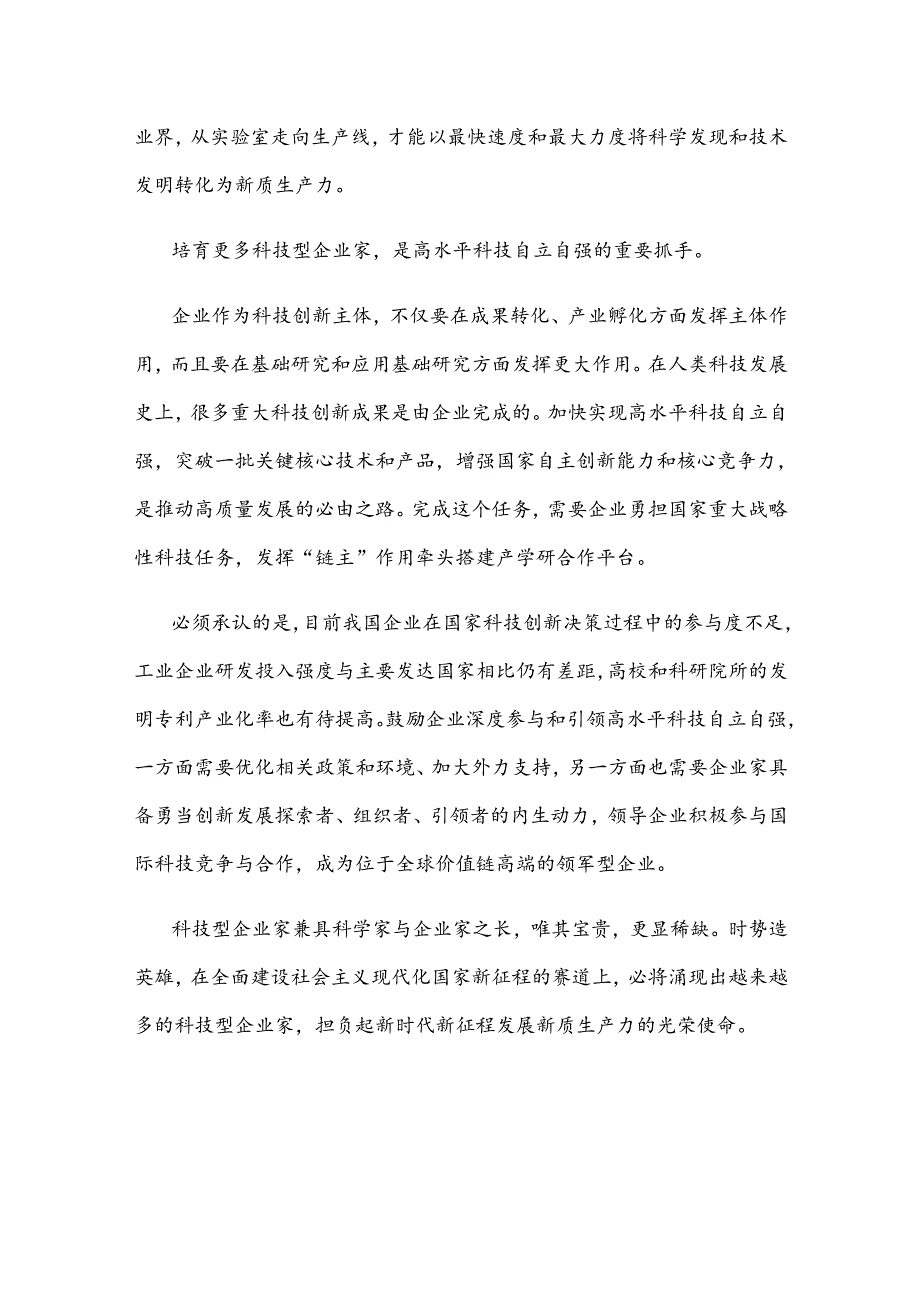 业界，从实验室走向生产线，才能以最快速度和最大力度将科学发现和技术
发明转化为新质生产力。
培育更多科技型企业家，是高水平科技自立自强的重要抓手。
企业作为科技创新主体，不仅要在成果转化、产业孵化方面发挥主体作
用，而且要在基础研究和应用基础研究方面发挥更大作用。在人类科技发展
史上，很多重大科技创新成果是由企业完成的。加快实现高水平科技自立自
强，突破一批关键核心技术和产品，增强国家自主创新能力和核心竞争力，
是推动高质量发展的必由之路。完成这个任务，需要企业勇担国家重大战略
性科技任务，发挥“链主”作用牵头搭建产学研合作平台。
必须承认的是，目前我国企业在国家科技创新决策过程中的参与度不足，
工业企业研发投入强度与主要发达国家相比仍有差距，高校和科研院所的发
明专利产业化率也有待提高。鼓励企业深度参与和引领高水平科技自立自强，
一方面需要优化相关政策和环境、加大外力支持，另一方面也需要企业家具
备勇当创新发展探索者、组织者、引领者的内生动力，领导企业积极参与国
际科技竞争与合作，成为位于全球价值链高端的领军型企业。
科技型企业家兼具科学家与企业家之长，唯其宝贵，更显稀缺。时势造
英雄，在全面建设社会主义现代化国家新征程的赛道上，必将涌现出越来越
多的科技型企业家，担负起新时代新征程发展新质生产力的光荣使命。